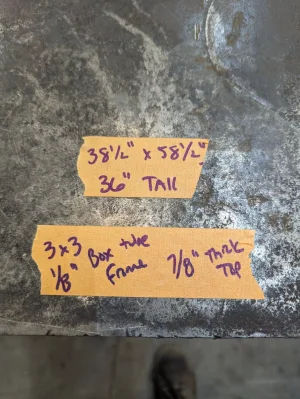 38½" x 58½"
36" TAll
3x3 Box tube 7/8" THick
1/8" Frame TOP